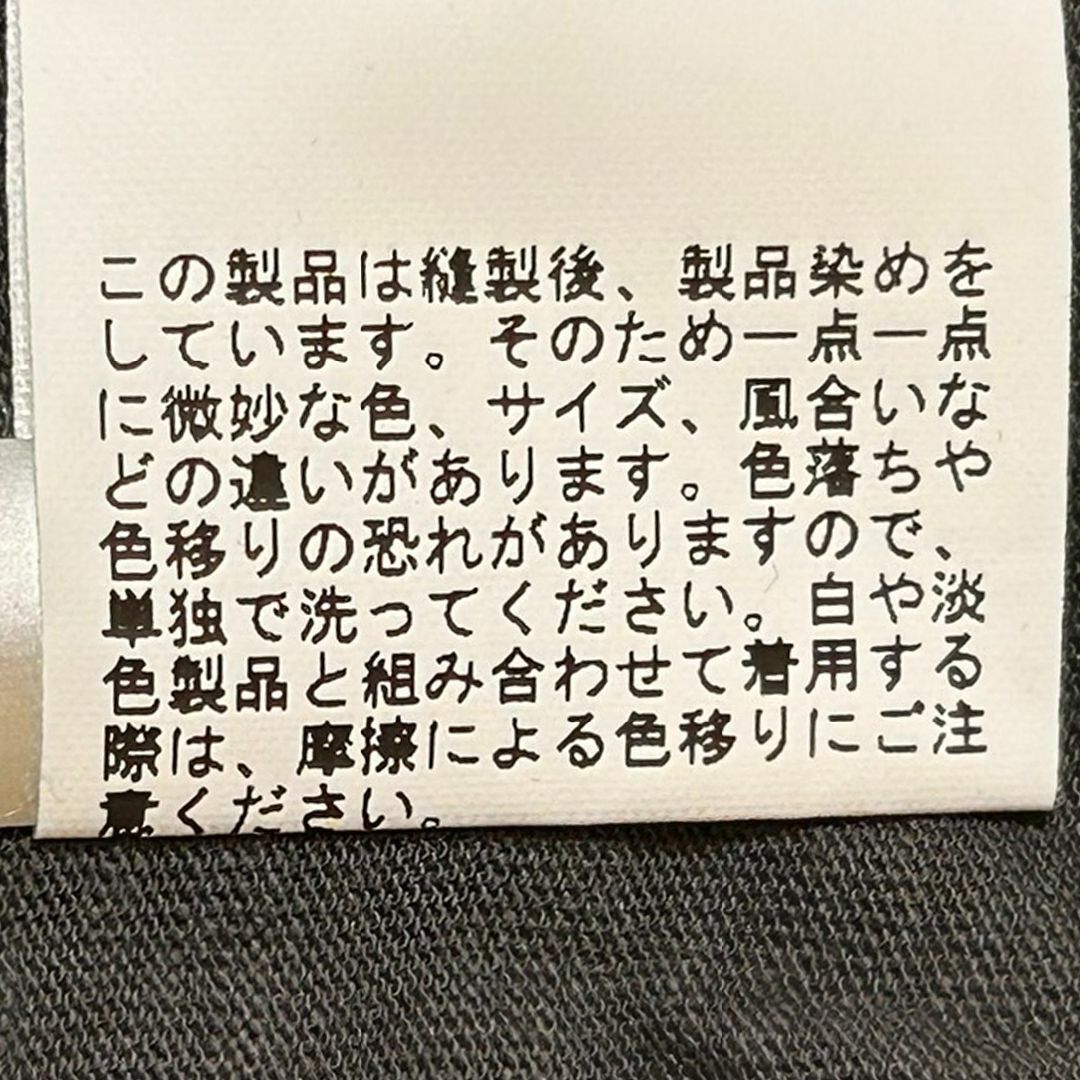 この製品は縫製後、製品染めを
しています。そのため一点一点
に微妙な色、サイズ、風合いな
どの違いがあります。色落ちや
色移りの恐れがありますので、
単独で洗ってください。白や淡
色製品と組み合わせて着用する
際は、摩擦による色移りにご注
意ください。